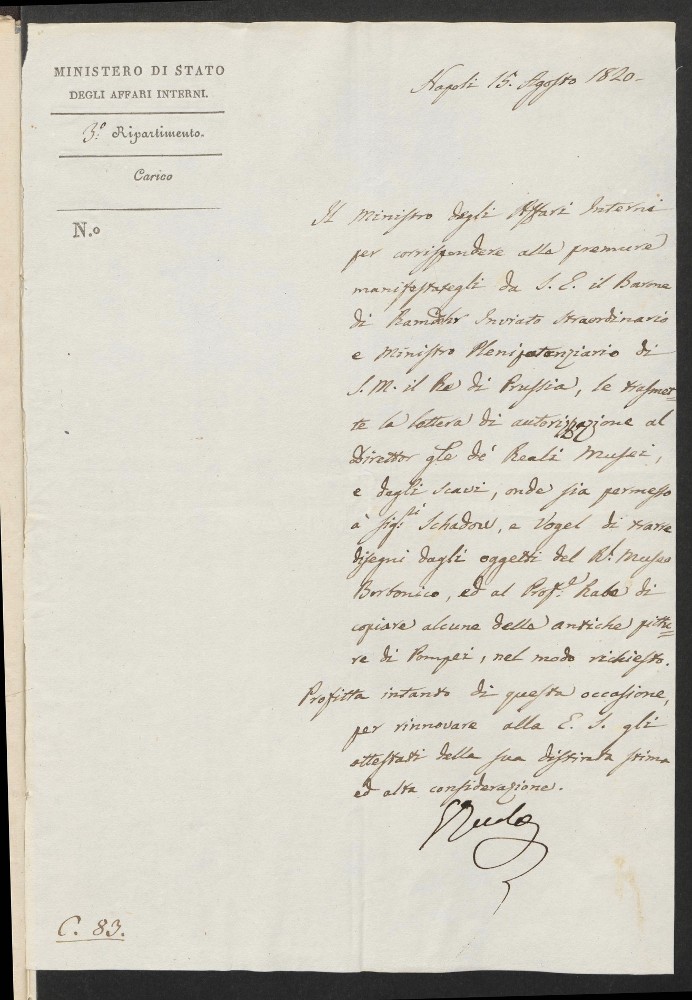 MINISTERO DI STATO
DEGLI AFFARI INTERNI.
3.º Ripartimento.
Carico
N.º
Napoli 15. Agosto 1820.
Il Ministro degli Affari Interni
per corrispondere alle premure
manifestategli da S. E. il Barone
di Ramdohr Inviato Straordinario
e Ministro Plenipotenziario di
S. M. il Re di Prussia, le trasmet=
te la lettera di autorizzazione al
Direttor gle de' Reali Musei,
e degli Scavi, onde sia permesso
a' Sig.ri Schadow, e Vogel di trarre
disegni dagli oggetti del Rl. Museo
Borbonico, ed al Prof.r Rabe di
copiare alcune delle antiche pittu=
re di Pompei, nel modo richiesto.
Profitta intanto di questa occasione,
per rinnovare alla E. S. gli
attestati della sua distinta stima
ed alta considerazione.
C. 83.